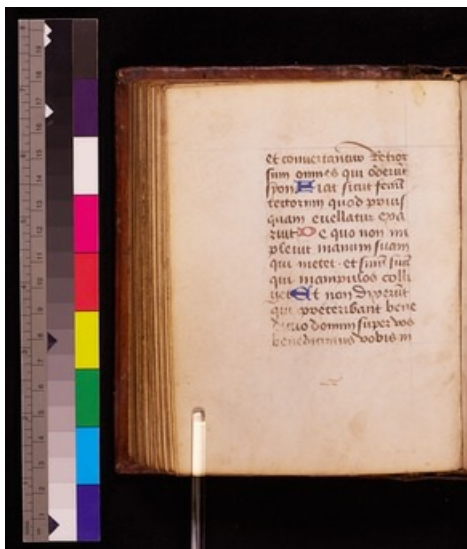 et convertantur retror
sum omnes qui oderūt
syon Fiat sicut fenū
tectorum quod prius
quam evellatur exa
ruit De quo non im
plevit manum suam
qui metet · et sinū suū
qui manipulos colli
get Et non dixerūt
qui preteribant bene
dictio domini super vos
benediximus vobis in